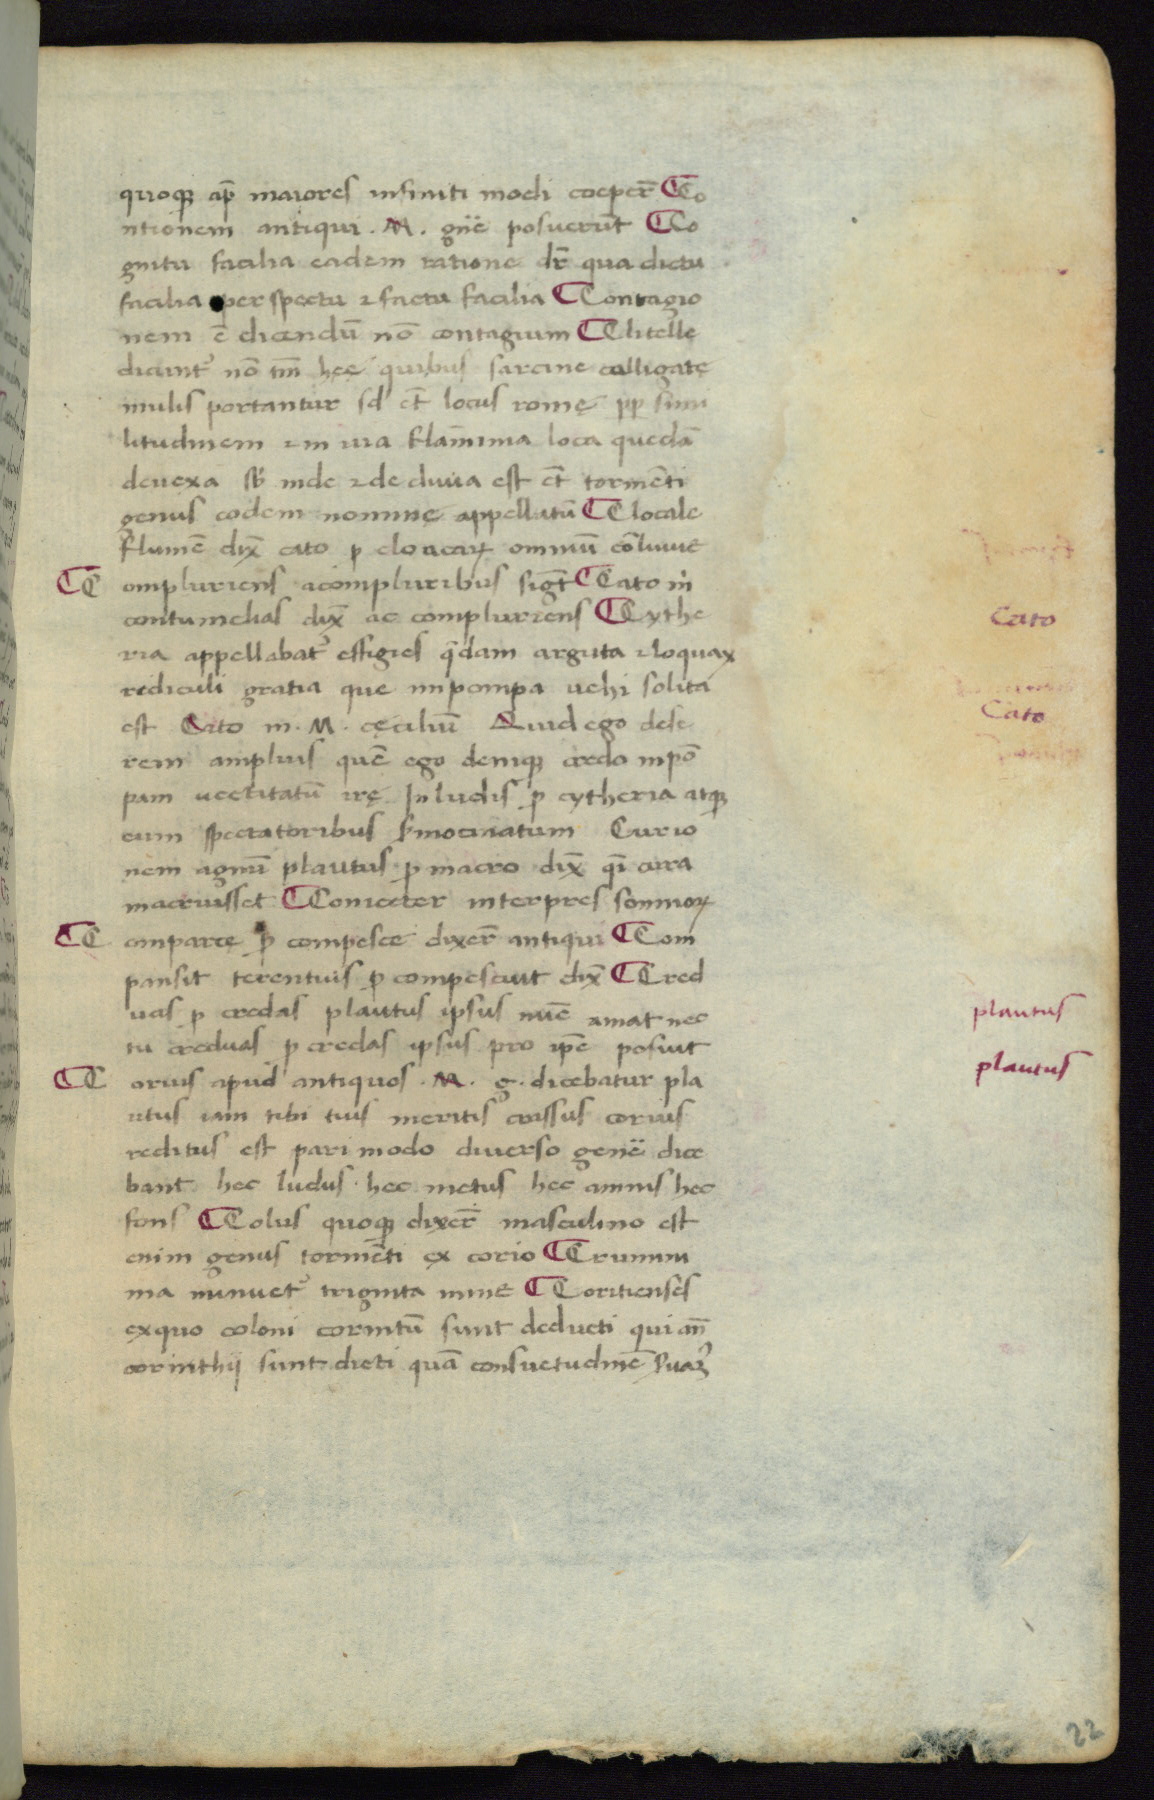 quoqꝫ ap̄ maiores infiniti modi coeper̄ Co
ntionem antiqui . M . gn̄e posuerūt Co
gnitu facilia eadem ratione dr̄ qua dictu
facilia perspectu ⁊ factu facilia Contagio
nem ē dicendū nō contagium Clitelle
dicunt᷑ nō tm̄ hęę quibus sarcine colligatę
mulis portantur sd' et̄ locus romę pp̄ simi
litudinem ⁊ in uia flāminia loca quedā
deuexa sb' inde ⁊ de cliuia est et̄ tormēti
genus eodem nomine appellatū Clocale
flumē dix̄ cato ꝓ cloacaꝝ omniū cōluuiē
Compluriens acompluribus sigt̄ Cato in
contumelias dix̄ ac compluriens Cythe
ria appellabat᷑ effigies q̄dam arguta ⁊ loquax
rediculi gratia que inpompa uehi solita
est Cato in . M . cęciliū Quid ego dese
rem amplius quē ego deniqꝫ credo inpō
pam uectitatū irę In ludis ꝓ cytheria atqꝫ
cum spectatoribus s̄mocinatum Curio
nem agnū plautus ꝓ macro dix̄ qi cura
macruisset Coniecter interpres somnioꝝ
Comparce ꝓ compesce dixer̄ antiqui Com
pansit terentius ꝓ compescuit dix̄ Cred
uas ꝓ credas plautus ipsus nūc amat nec
tu creduas ꝓ credas ipsus pro ip̄e posuit
Corius apud antiquos . M . g . dicebatur pla
utus iam tibi tuis meritis crassus corius
reditus est pari modo diuerso genē dice
bant hec ludus . hec metus hec amnis hec
fons Colus quoqꝫ dixer̄ masculino est
enim genus tormēti ex corio Crumin
ma minuet᷑ triginta minē Coritienses
exquo coloni corintū sunt deducti qui añ
corinthij sunt dicti quā consuetudinē
Cato
Cato
plautus
plautus
22